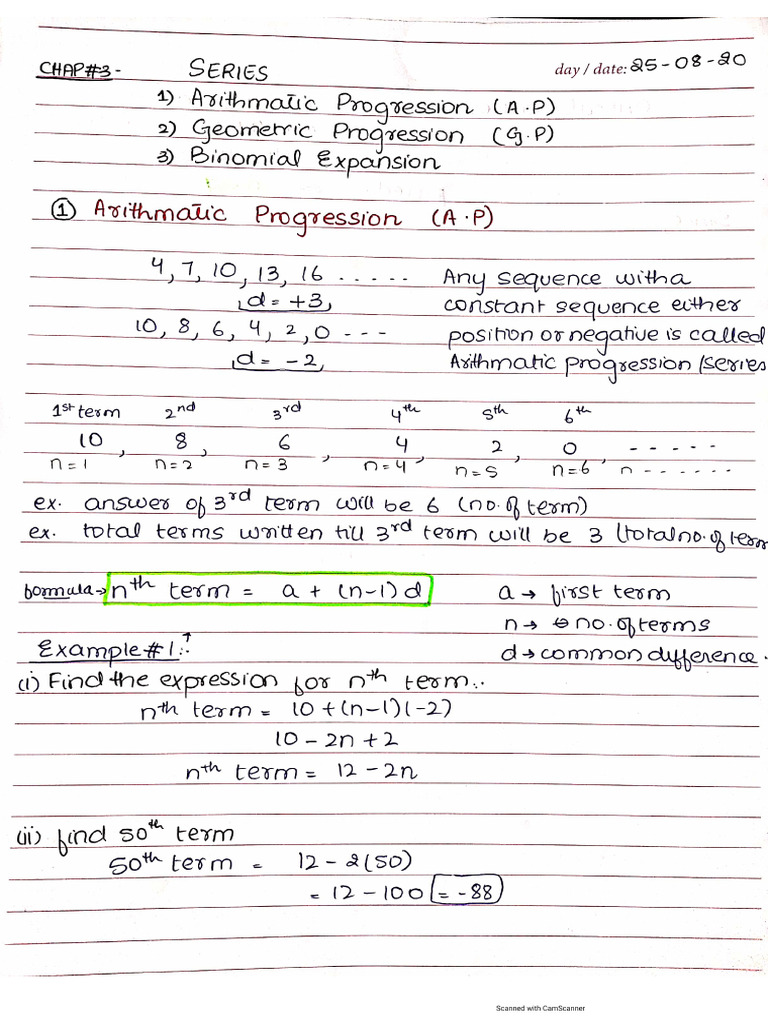 CHAP#3- SERIES day / date: 25-08-20
1) Arithmatic Progression (A.P)
2) Geometric Progression (G.P)
3) Binomial Expansion
① Arithmatic Progression (A.P)
4, 7, 10, 13, 16 ..... Any sequence with a
d = +3 constant sequence either
10, 8, 6, 4, 2, 0 --- position or negative is called
d = -2 Arithmatic progression/series
1st term 2nd 3rd 4th 5th 6th
10, 8, 6, 4, 2, 0, -----
n=1 n=2 n=3 n=4 n=5 n=6 n ------
ex. answer of 3rd term will be 6 (no. of term)
ex. total terms written till 3rd term will be 3 (total no. of term
formula→ nth term = a + (n-1) d a → first term
n → no. of terms
Example #1:- d → common difference.
(i) Find the expression for nth term:.
nth term = 10 + (n-1)(-2)
10 - 2n + 2
nth term = 12 - 2n
(ii) find 50th term
50th term = 12 - 2(50)
= 12 - 100 = -88
Scanned with CamScanner